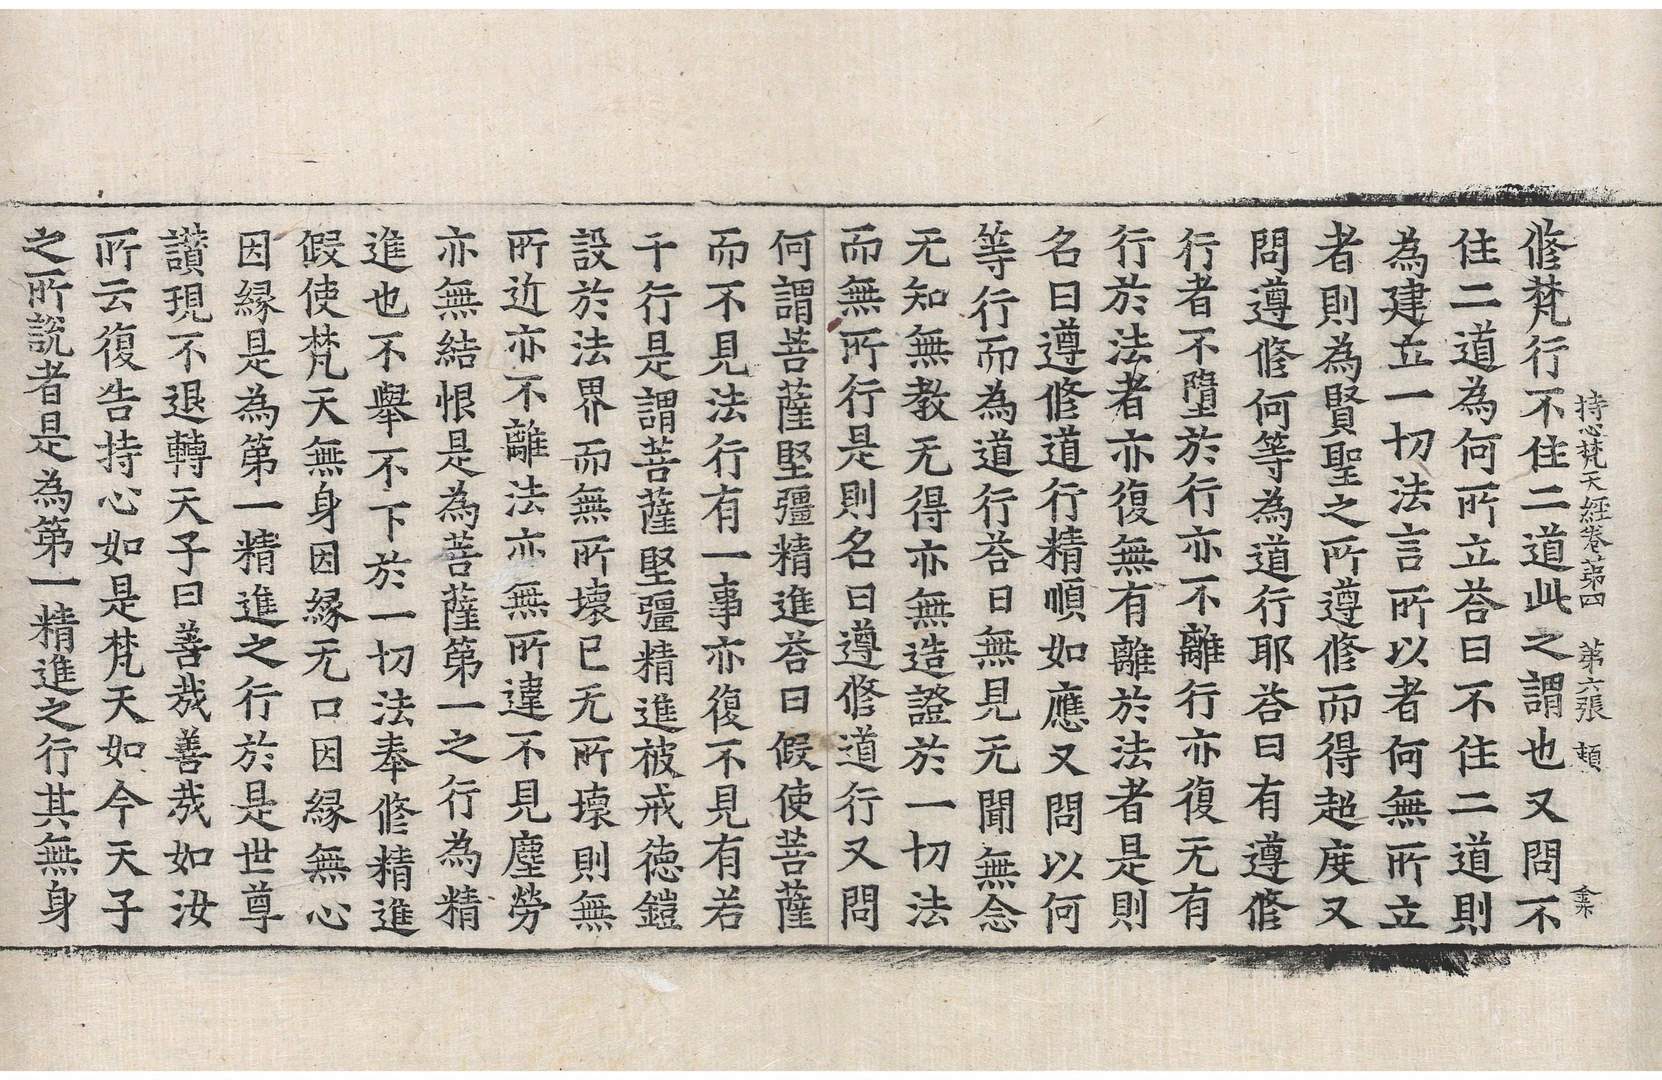 持心梵天經卷第四　第六張　頓
修梵行不住二道此之謂也又問不
住二道為何所立荅曰不住二道則
為建立一切法言所以者何無所立
者則為賢聖之所遵修而得超度又
問遵修何等為道行耶荅曰有遵修
行者不墮於行亦不離行亦復无有
行於法者亦復無有離於法者是則
名曰遵修道行精順如應又問以何
等行而為道行荅曰無見无聞無念
无知無教无得亦無造證於一切法
而無所行是則名曰遵修道行又問
何謂菩薩堅彊精進荅曰假使菩薩
而不見法行有一事亦復不見有若
干行是謂菩薩堅彊精進被戒德鎧
設於法界而無所壞已无所壞則無
所近亦不離法亦無所違不見塵勞
亦無結恨是為菩薩第一之行為精
進也不舉不下於一切法奉修精進
假使梵天無身因縁无口因縁無心
因縁是為第一精進之行於是世尊
讃現不退轉天子曰善哉善哉如汝
所云復告持心如是梵天如今天子
之所說者是為第一精進之行其無身